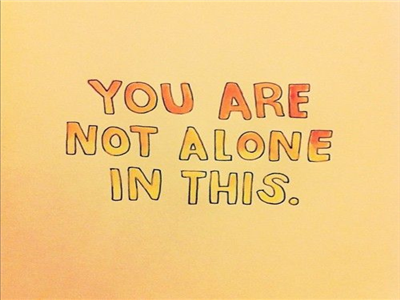 YOU ARE
NOT ALONE
IN THIS.